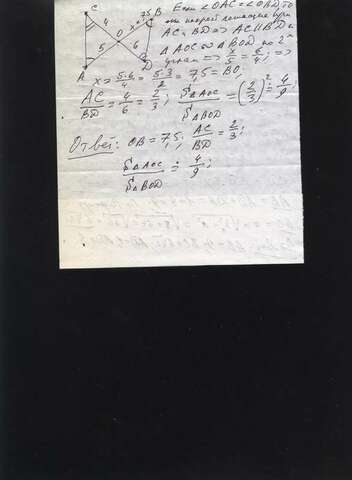 C 4 O x 7,5 B
A 5 6 D
Если ∠OAC = ∠OBD, то
они накрест лежащие при
AC и BD => AC || BD и
△AOC ∾ △BOD по 2м
углам => x/5 = 6/4; =>
x = 5·6/4 = 5·3/2 = 7,5 = BO.
AC/BD = 4/6 = 2/3; S△AOC/S△BOD = (2/3)² = 4/9;
Ответ: OB = 7,5; AC/BD = 2/3;
S△AOC/S△BOD = 4/9;